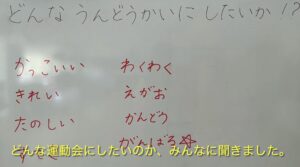 どんなうんどうかいにしたいか!?
かっこいい わくわく
きれい えがお
たのしい かんどう
がんばる
どんな運動会にしたいのか、みんなに聞きました。